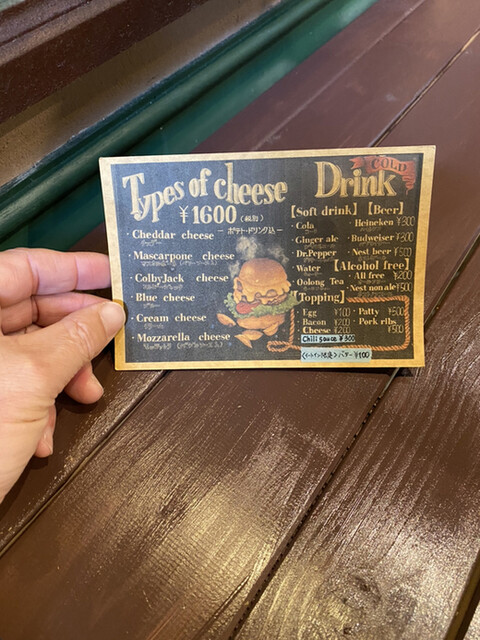 Types of cheese
¥1600 (税別)
— ポテト・ドリンク込 —
Cheddar cheese
チェダー
Mascarpone cheese
ColbyJack cheese
コルビージャック
Blue cheese
ブルー
Cream cheese
クリーム
Mozzarella cheese
Drink
COLD
【Soft drink】
・Cola
・Ginger ale
・Dr.Pepper
・Water
・Oolong Tea
【Beer】
・Heineken ¥300
・Budweiser ¥300
・Nest beer ¥500
【Alcohol free】
・All free ¥200
・Nest non ale ¥500
【Topping】
・Egg ¥100
・Bacon ¥200
・Cheese ¥200
・Patty ¥500
・Pork ribs
¥500
Chili sauce ¥300
バター ¥100